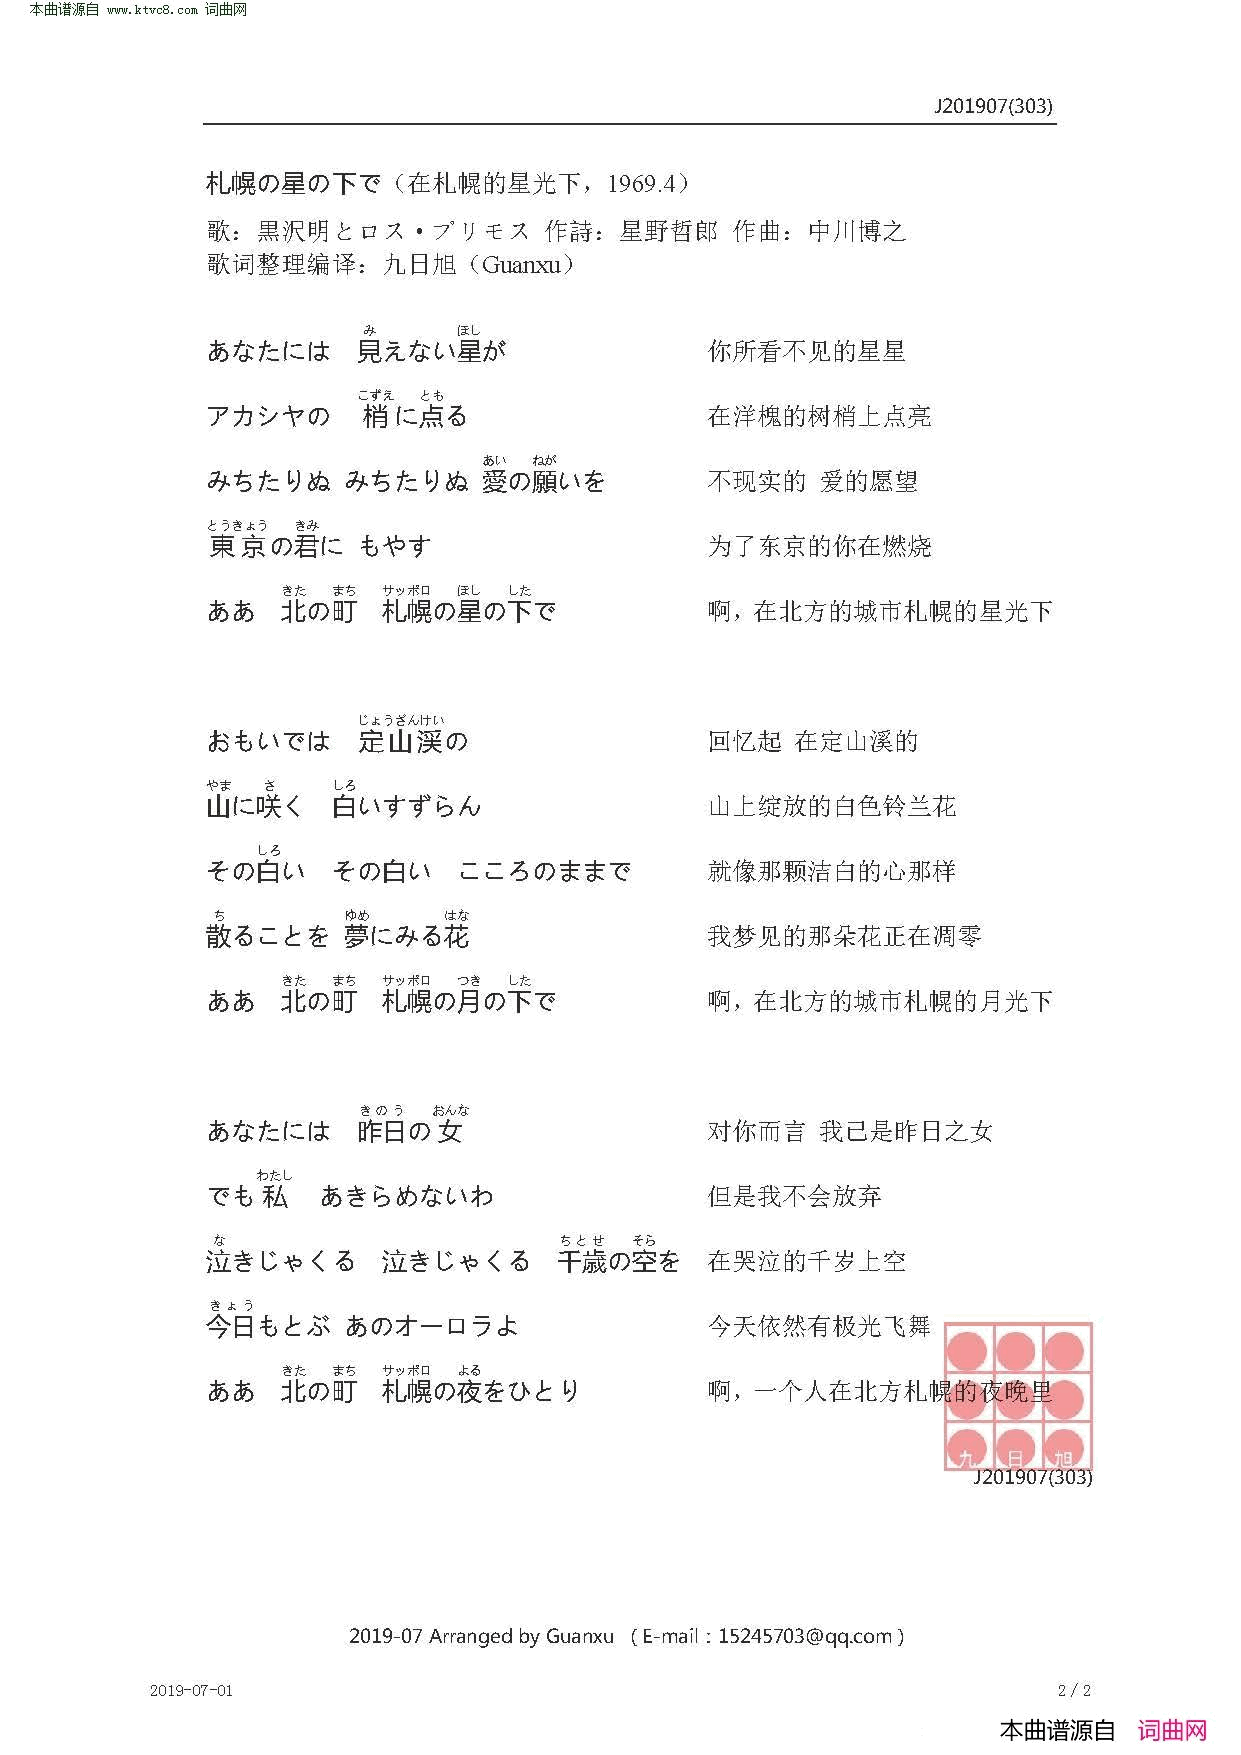 本曲谱源自 www.ktvc8.com 词曲网
J201907(303)
札幌の星の下で（在札幌的星光下，1969.4）
歌：黒沢明とロス・プリモス 作詩：星野哲郎 作曲：中川博之
歌词整理编译：九日旭（Guanxu）
み ほし
あなたには 見えない星が 你所看不见的星星
こずえ とも
アカシヤの 梢に点る 在洋槐的树梢上点亮
あい ねが
みちたりぬ みちたりぬ 愛の願いを 不现实的 爱的愿望
とうきょう きみ
東京の君に もやす 为了东京的你在燃烧
きた まち サッポロ ほし した
ああ 北の町 札幌の星の下で 啊，在北方的城市札幌的星光下
じょうざんけい
おもいでは 定山渓の 回忆起 在定山溪的
やま さ しろ
山に咲く 白いすずらん 山上绽放的白色铃兰花
しろ
その白い その白い こころのままで 就像那颗洁白的心那样
ち ゆめ はな
散ることを 夢にみる花 我梦见的那朵花正在凋零
きた まち サッポロ つき した
ああ 北の町 札幌の月の下で 啊，在北方的城市札幌的月光下
きのう おんな
あなたには 昨日の女 对你而言 我已是昨日之女
わたし
でも私 あきらめないわ 但是我不会放弃
な ちとせ そら
泣きじゃくる 泣きじゃくる 千歳の空を 在哭泣的千岁上空
きょう
今日もとぶ あのオーロラよ 今天依然有极光飞舞
きた まち サッポロ よる
ああ 北の町 札幌の夜をひとり 啊，一个人在北方札幌的夜晚里
九 日 旭
J201907(303)
2019-07 Arranged by Guanxu （ E-mail : 15245703@qq.com ）
2019-07-01 2 / 2
本曲谱源自 词曲网